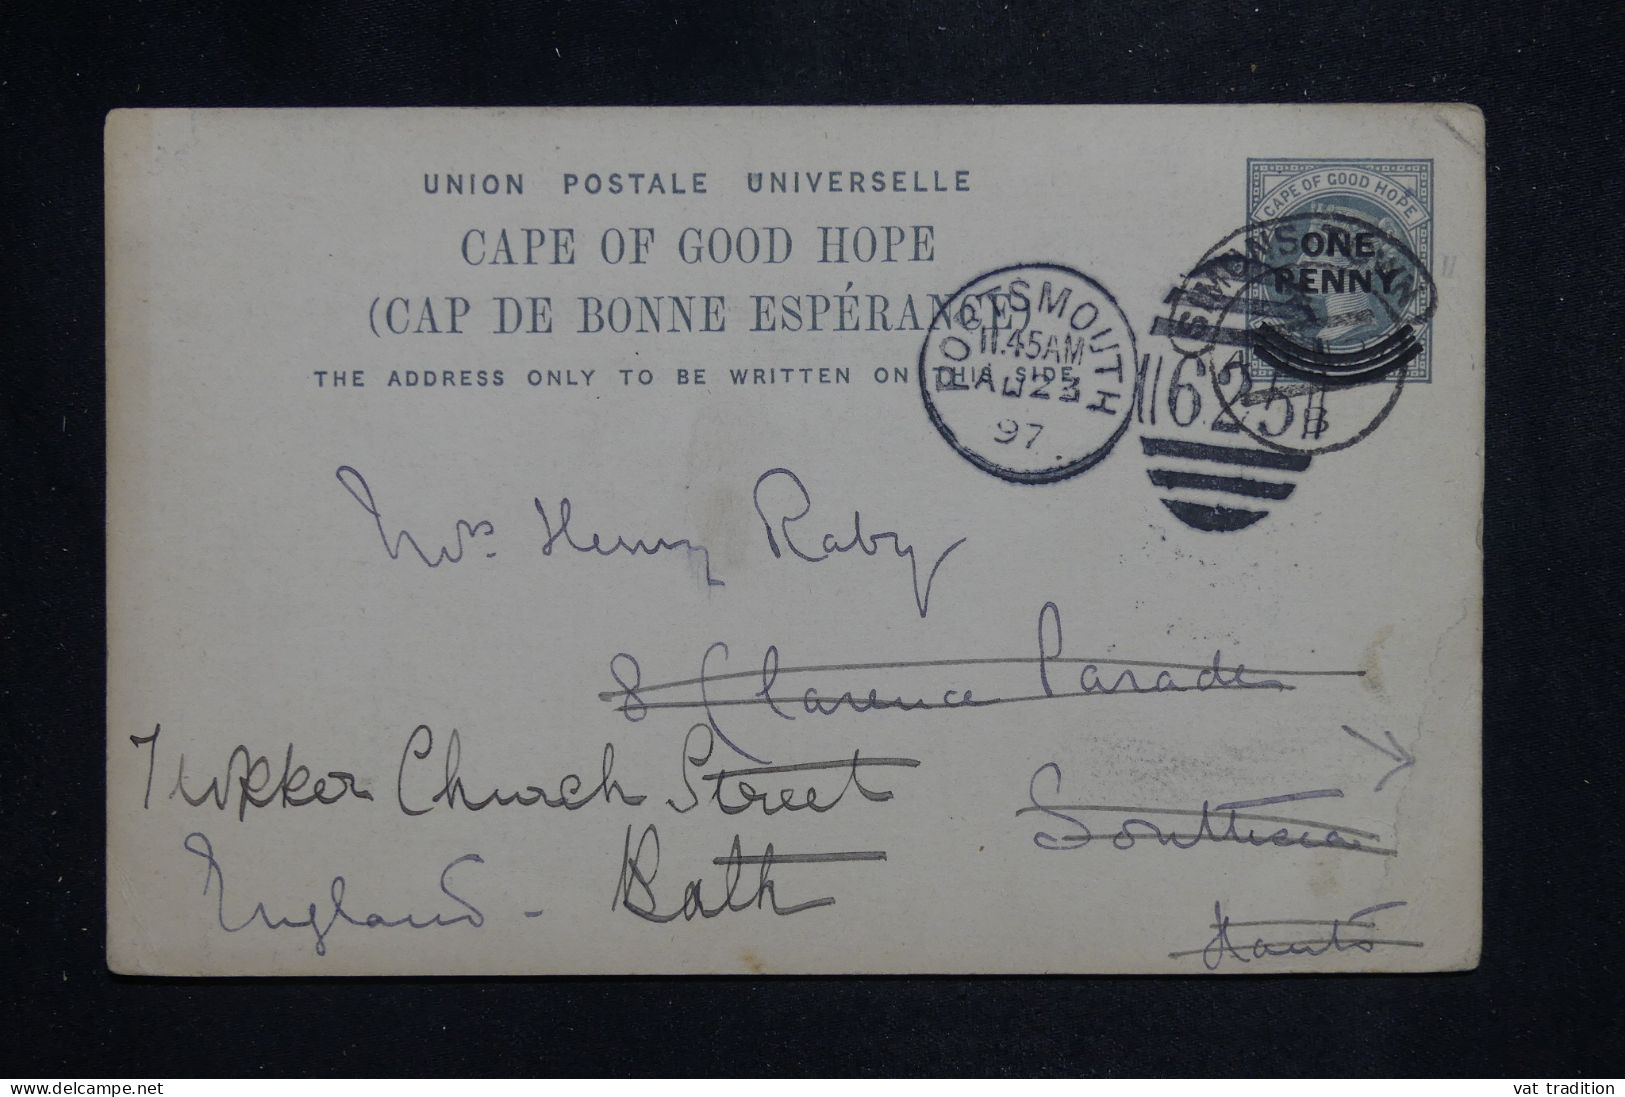 UNION POSTALE UNIVERSELLE
CAPE OF GOOD HOPE
(CAP DE BONNE ESPÉRANCE)
THE ADDRESS ONLY TO BE WRITTEN ON THIS SIDE
CAPE OF GOOD HOPE
ONE
PENNY
SIMONS TOWN
PORTSMOUTH
11.45AM
AU 23
97
625
Mrs. Henry Raby
8 Clarence Parade
Southsea
Hants
7 Upper Church Street
Bath
England -
vat tradition
www.delcampe.net